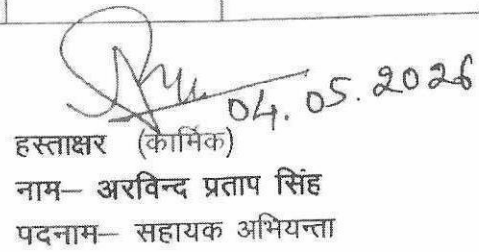 04.05.2026
हस्ताक्षर (कार्मिक)
नाम– अरविन्द प्रताप सिंह
पदनाम– सहायक अभियन्ता